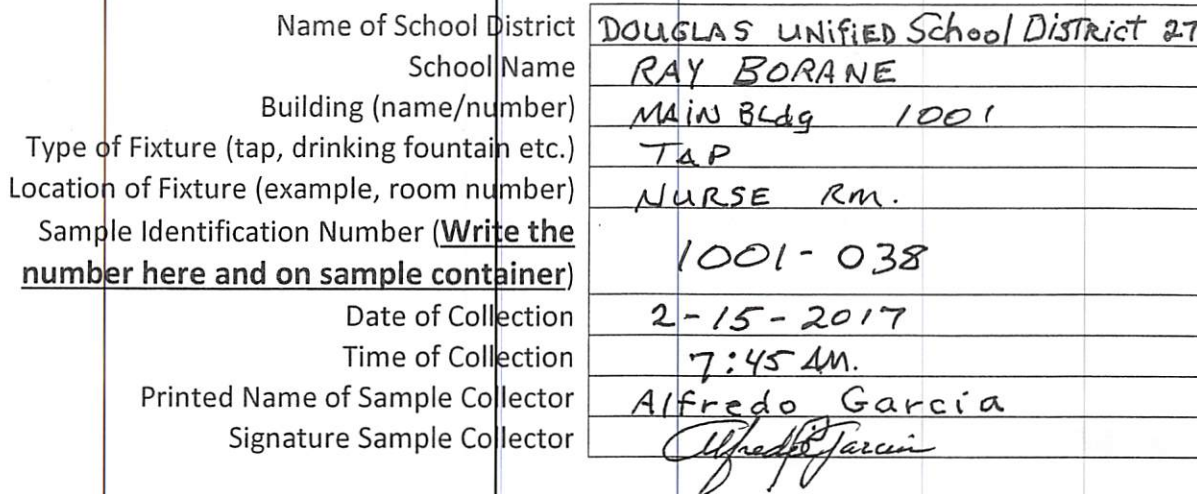 Name of School District DOUGLAS UNiFiED School DiSTRict 27
School Name RAY BORANE
Building (name/number) MAiN BLdg 1001
Type of Fixture (tap, drinking fountain etc.) TAP
Location of Fixture (example, room number) NURSE Rm.
Sample Identification Number (Write the
number here and on sample container) 1001-038
Date of Collection 2-15-2017
Time of Collection 7:45 AM.
Printed Name of Sample Collector Alfredo Garcia
Signature Sample Collector Alfredo Garcia